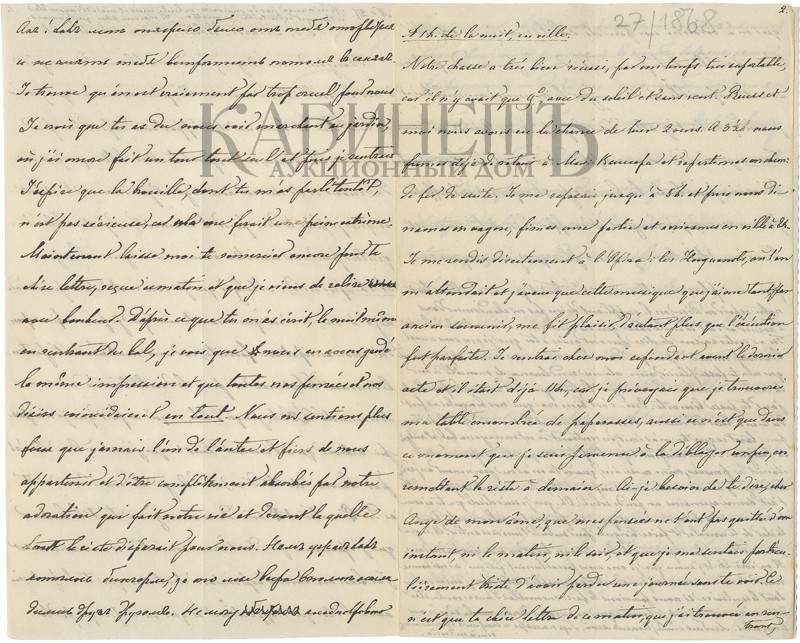 Je trouve qu'on est vraiment par trop cruel pour nous
Je vois que tu as du nous voir marchant au jardin,
où j'ai encore fait un tour tout seul et puis je rentrais
J'espère que la brouille, dont tu m'as parlé tantôt,
n'est pas sérieuse, car cela me ferait une peine extrème.
Maintenant laisse moi te remercier encore pour ta
chère lettre, reçue ce matin et que je viens de relire
avec bonheur. D'après ce que tu m'as écrit, la nuit même
en rentrant du bal, je vois que nous en avons gardé
la même impression et que toutes nos pensées et nos
désirs coincidaient en tout. Nous nous sentions plus
que jamais l'un de l'autre et fiers de nous
appartenir et d'être complètement absorbés par notre
adoration qui fait notre vie et devant la quelle
tout le reste disparait pour nous.
КАБИНЕТЪ
АУКЦИОННЫЙ ДОМ
27/1868
2.
A 1 h. de la nuit, en ville.
Notre chasse a très bien réussi, par un temps très suportable,
car il n'y avait que 9° avec du soleil et sans vent. Reuss et
moi nous avons eu la chance de tuer 2 ours. A 3 ½ nous
fumes déjà de retour à et repartimes en chemin
de fer de suite. Je me reposai jusqu'à 5 h. et puis nous di-
names en wagon, fimes une partie et arrivames en ville à 8 h.
Je me rendis directement à l'Opéra: les Huguenots, où l'on
m'attendait et j'avoue que cette musique que j'aime tant, par
ancien souvenir, me fit plaisir, d'autant plus que l'exécution
fut parfaite. Je rentrai chez moi cependant avant le dernier
acte et il était déjà 11 h, car je prévoyais que je trouverai
ma table encombrée de paperasses, aussi ce n'est que dans
ce moment que je suis parvenu à la déblayer un peu, en
remettant le reste à demain. Ai-je besoin de te dire, cher
Ange de mon âme, que mes pensées ne t'ont pas quitté d'un
instant, ni le matin, ni le soir, et que je me sentais particu-
lièrement triste d'avoir perdu une journée sans te voir. Ce
n'est que ta chère lettre de ce matin, que j'ai trouvée en ren-
trant,